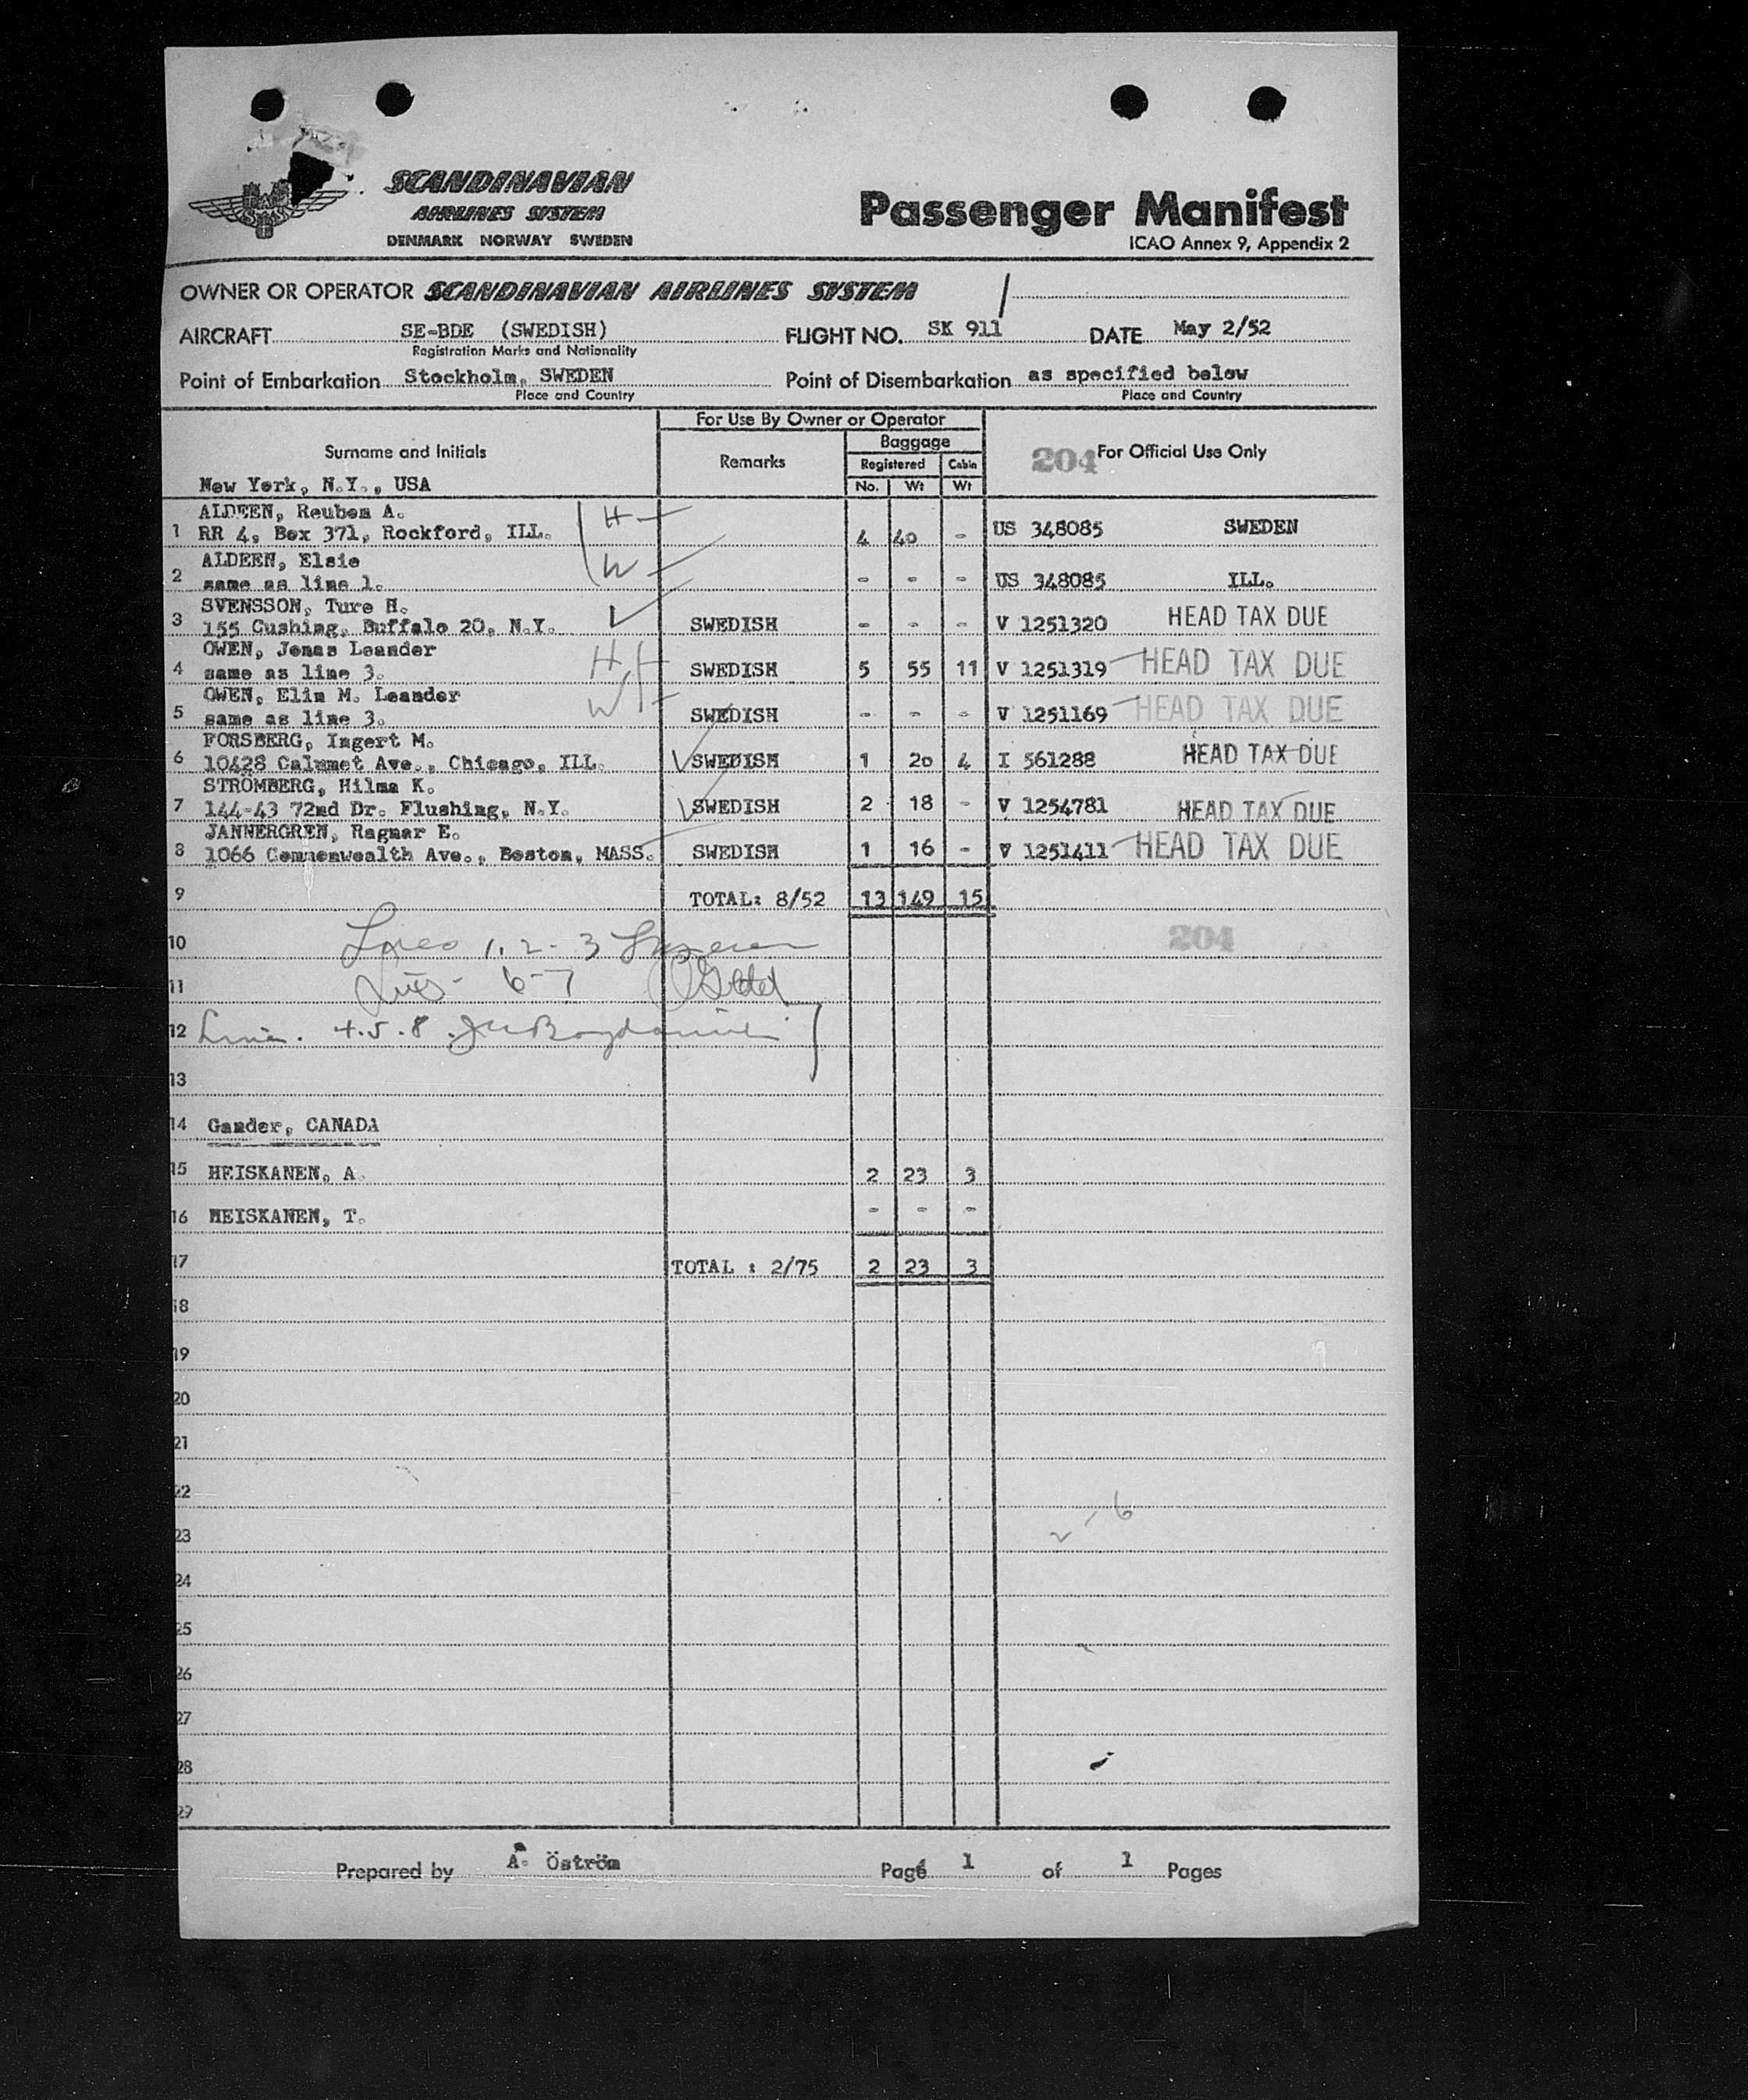 SCANDINAVIAN
AIRLINES SYSTEM
DENMARK NORWAY SWEDEN
Passenger Manifest
ICAO Annex 9, Appendix 2
OWNER OR OPERATOR SCANDINAVIAN AIRLINES SYSTEM
AIRCRAFT SE-BDE (SWEDISH) FLIGHT NO. SK 911 DATE May 2/52
Registration Marks and Nationality
Point of Embarkation Stockholm, SWEDEN Point of Disembarkation as specified below
Place and Country Place and Country
For Use By Owner or Operator
Surname and Initials Remarks Baggage 204 For Official Use Only
Registered Cabin
New York, N.Y., USA No. Wt Wt
ALDEEN, Reuben A. H
1 RR 4, Box 371, Rockford, ILL. 4 40 - US 348085 SWEDEN
ALDEEN, Elsie W
2 same as line 1. - - - US 348085 ILL.
SVENSSON, Ture H.
3 155 Cushing, Buffalo 20, N.Y. SWEDISH - - - V 1251320 HEAD TAX DUE
OWEN, Jonas Leander H
4 same as line 3. SWEDISH 5 55 11 V 1251319 HEAD TAX DUE
OWEN, Elin M. Leander W
5 same as line 3. SWEDISH - - - V 1251169 HEAD TAX DUE
FORSBERG, Ingert M.
6 10428 Calumet Ave., Chicago, ILL. SWEDISH 1 20 4 I 561288 HEAD TAX DUE
STROMBERG, Hilma K.
7 144-43 72nd Dr. Flushing, N.Y. SWEDISH 2 18 - V 1254781 HEAD TAX DUE
JANNERGREN, Ragnar E.
8 1066 Commonwealth Ave., Boston, MASS. SWEDISH 1 16 - V 1251411 HEAD TAX DUE
9 TOTAL: 8/52 13 149 15
10 1. 2 - 3 204
11 6-7
12 4.5.8
13
14 Gander, CANADA
15 HEISKANEN, A. 2 23 3
16 HEISKANEN, T. - - -
17 TOTAL : 2/75 2 23 3
18
19
20
21
22
23 2 - 6
24
25
26
27
28
29
Prepared by A. Öström Page 1 of 1 Pages